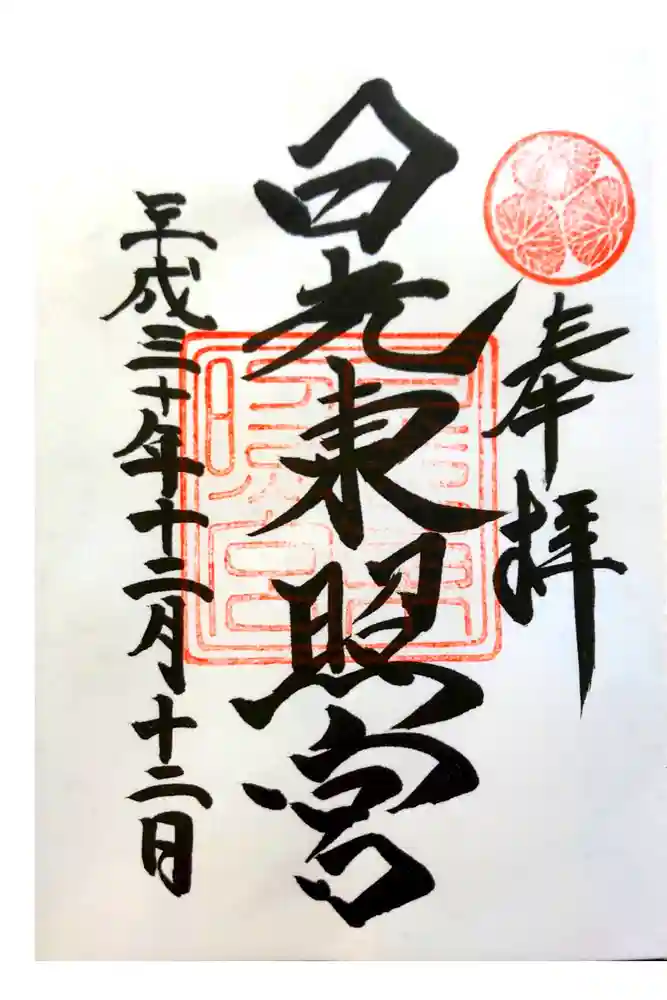 奉拝
日光東照宮
平成三十年十二月十二日